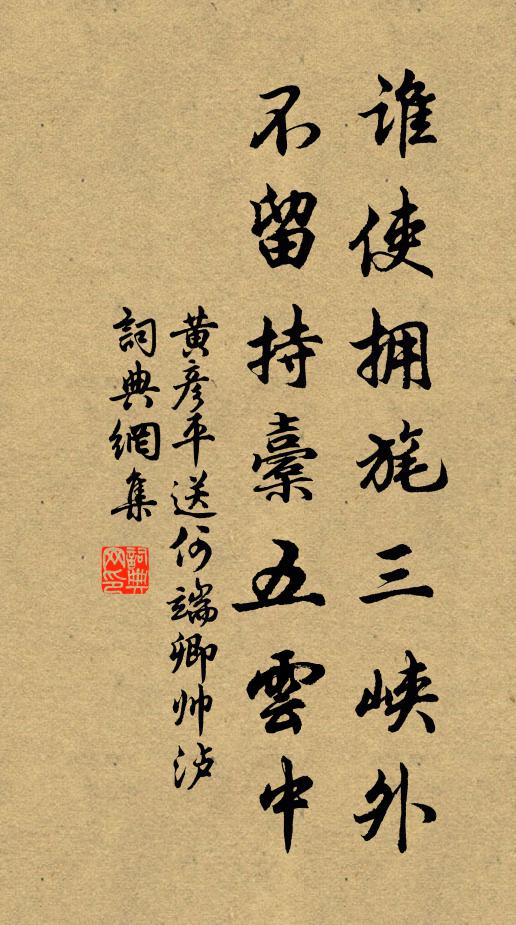 谁使拥旄三峡外
不留持橐五雲中
黄彦平送何端卿帅泸
詞典網集
詞典网印